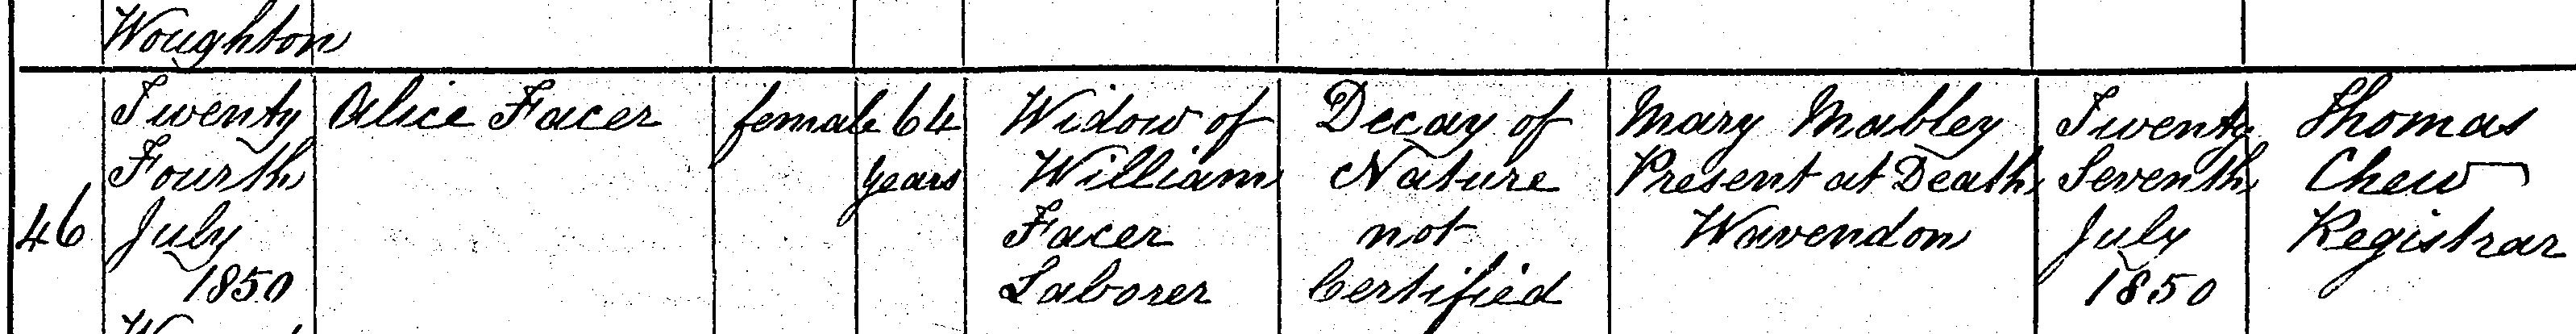 Woughton
46
Twenty
Fourth
July
1850
Alice Facer
female
64
years
Widow of
William
Facer
Laborer
Decay of
Nature
not
Certified
Mary Mabley
Present at Death
Wavendon
Twenty
Seventh
July
1850
Thomas
Chew
Registrar